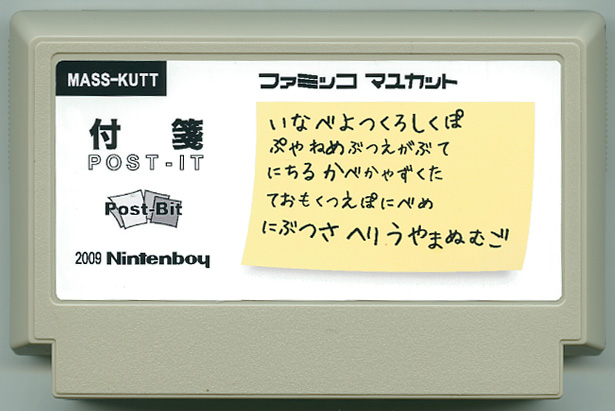 MASS-KUTT
ファミッコ マユカット
付箋
POST-IT
Post-Bit
2009 Nintenboy
いなべよつくろしくぽ
ぷやねめぶつえがぶて
にちるかべかゃずくた
ておもくつえぽにべめ
にぶつさへりうやまぬむご